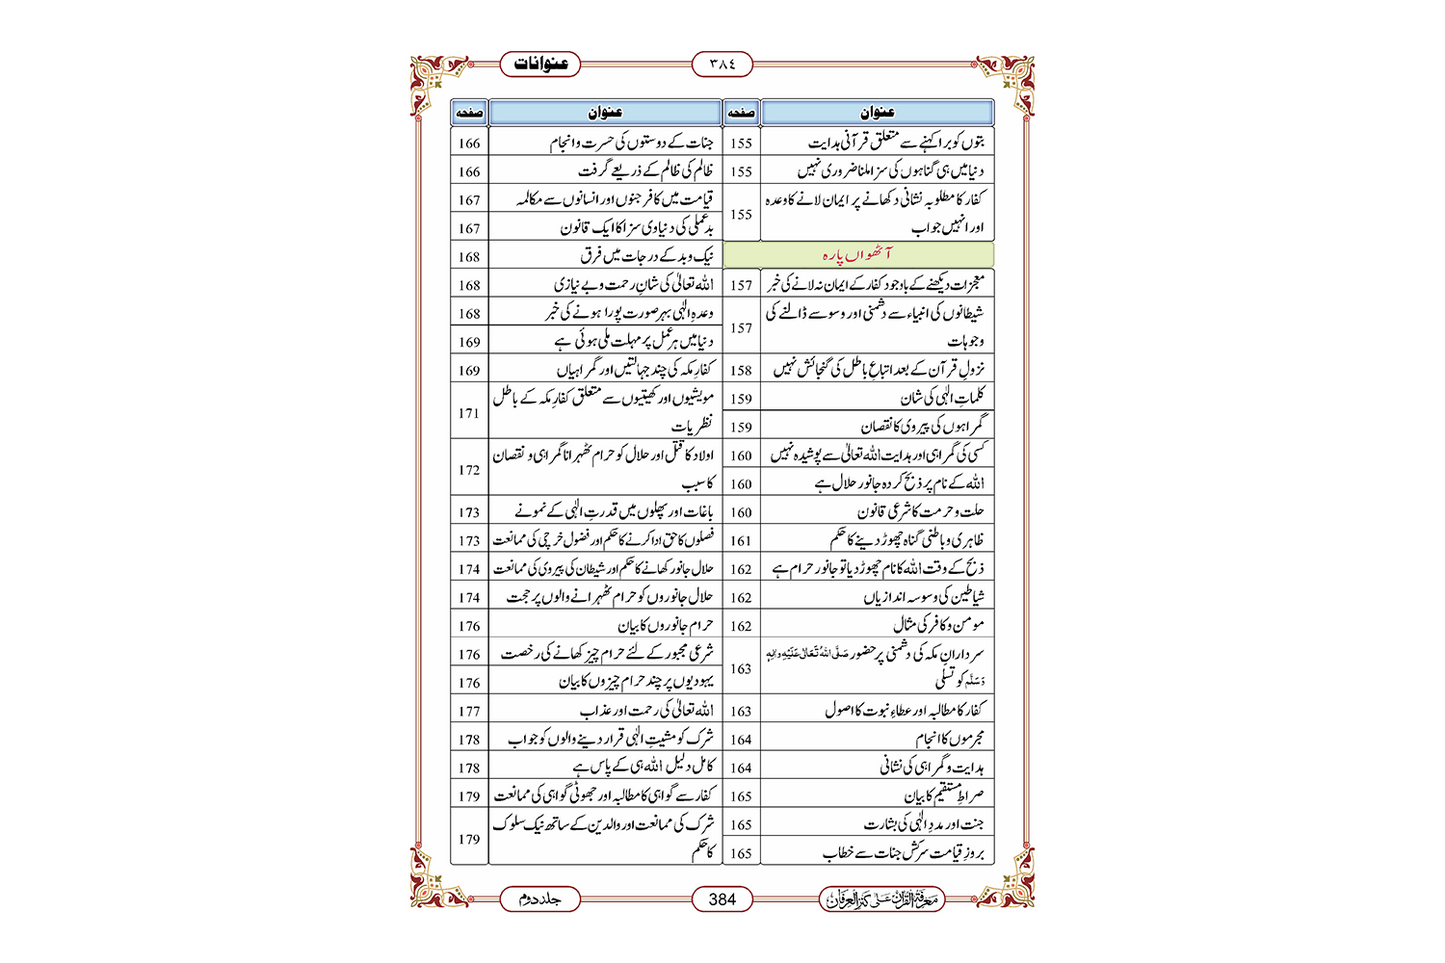 عنوانات
٣٨٤
عنوان
صفحه
بتوں کو برا کہنے سے متعلق قرآنی ہدایت
155
دنیا میں ہی گناہوں کی سزا ملنا ضروری نہیں
155
کفار کا مطلوبہ نشانی دکھانے پر ایمان لانے کا وعدہ
اور انہیں جواب
155
آٹھواں پارہ
معجزات دیکھنے کے باوجود کفار کے ایمان نہ لانے کی خبر
157
شیطانوں کی انبیاء سے دشمنی اور وسوسے ڈالنے کی
وجوہات
157
نزولِ قرآن کے بعد اتباعِ باطل کی گنجائش نہیں
158
کلماتِ الٰہی کی شان
159
گمراہوں کی پیروی کا نقصان
159
کسی کی گمراہی اور ہدایت اللہ تعالیٰ سے پوشیدہ نہیں
160
اللہ کے نام پر ذبح کردہ جانور حلال ہے
160
حلت و حرمت کا شرعی قانون
160
ظاہری و باطنی گناہ چھوڑ دینے کا حکم
161
ذبح کے وقت اللہ کا نام چھوڑ دیا تو جانور حرام ہے
162
شیاطین کی وسوسہ اندازیاں
162
مومن و کافر کی مثال
162
سردارانِ مکہ کی دشمنی پر حضور صَلَّی اللہُ تَعَالٰی عَلَیْہِ وَاٰلِہٖ
وَسَلَّم کو تسلّی
163
کفار کا مطالبہ اور عطاءِ نبوت کا اصول
163
مجرموں کا انجام
164
ہدایت و گمراہی کی نشانی
164
صراطِ مستقیم کا بیان
165
جنت اور مددِ الٰہی کی بشارت
165
بروزِ قیامت سرکش جنات سے خطاب
165
عنوان
صفحه
جنات کے دوستوں کی حسرت و انجام
166
ظالم کی ظالم کے ذریعے گرفت
166
قیامت میں کافر جنوں اور انسانوں سے مکالمہ
167
بدعملی کی دنیاوی سزا کا ایک قانون
167
نیک و بد کے درجات میں فرق
168
اللہ تعالیٰ کی شانِ رحمت و بے نیازی
168
وعدہِ الٰہی بہر صورت پورا ہونے کی خبر
168
دنیا میں ہر عمل پر مہلت ملی ہوئی ہے
169
کفارِ مکہ کی چند جہالتیں اور گمراہیاں
169
مویشیوں اور کھیتیوں سے متعلق کفارِ مکہ کے باطل
نظریات
171
اولاد کا قتل اور حلال کو حرام ٹھہرانا گمراہی و نقصان
کا سبب
172
باغات اور پھلوں میں قدرتِ الٰہی کے نمونے
173
فصلوں کا حق ادا کرنے کا حکم اور فضول خرچی کی ممانعت
173
حلال جانور کھانے کا حکم اور شیطان کی پیروی کی ممانعت
174
حلال جانوروں کو حرام ٹھہرانے والوں پر حجت
174
حرام جانوروں کا بیان
176
شرعی مجبور کے لئے حرام چیز کھانے کی رخصت
176
یہودیوں پر چند حرام چیزوں کا بیان
176
اللہ تعالیٰ کی رحمت اور عذاب
177
شرک کو مشیتِ الٰہی قرار دینے والوں کو جواب
178
کامل دلیل اللہ ہی کے پاس ہے
178
کفار سے گواہی کا مطالبہ اور جھوٹی گواہی کی ممانعت
179
شرک کی ممانعت اور والدین کے ساتھ نیک سلوک
کا حکم
179
معرفۃ القرآن علیٰ کنز العرفان
384
جلد دوم